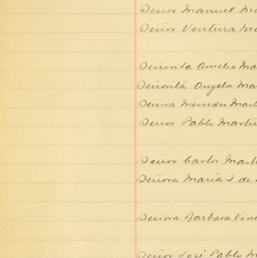 Señor Manuel M
Señor Ventura M
Señorita Amelia Ma
Señorita Angela Ma
Señora Mercedes Mart
Señor Pablo Martí
Señor Carlos Mart
Señora María I. de
Señora Barbara Ven
Señor José Pablo M